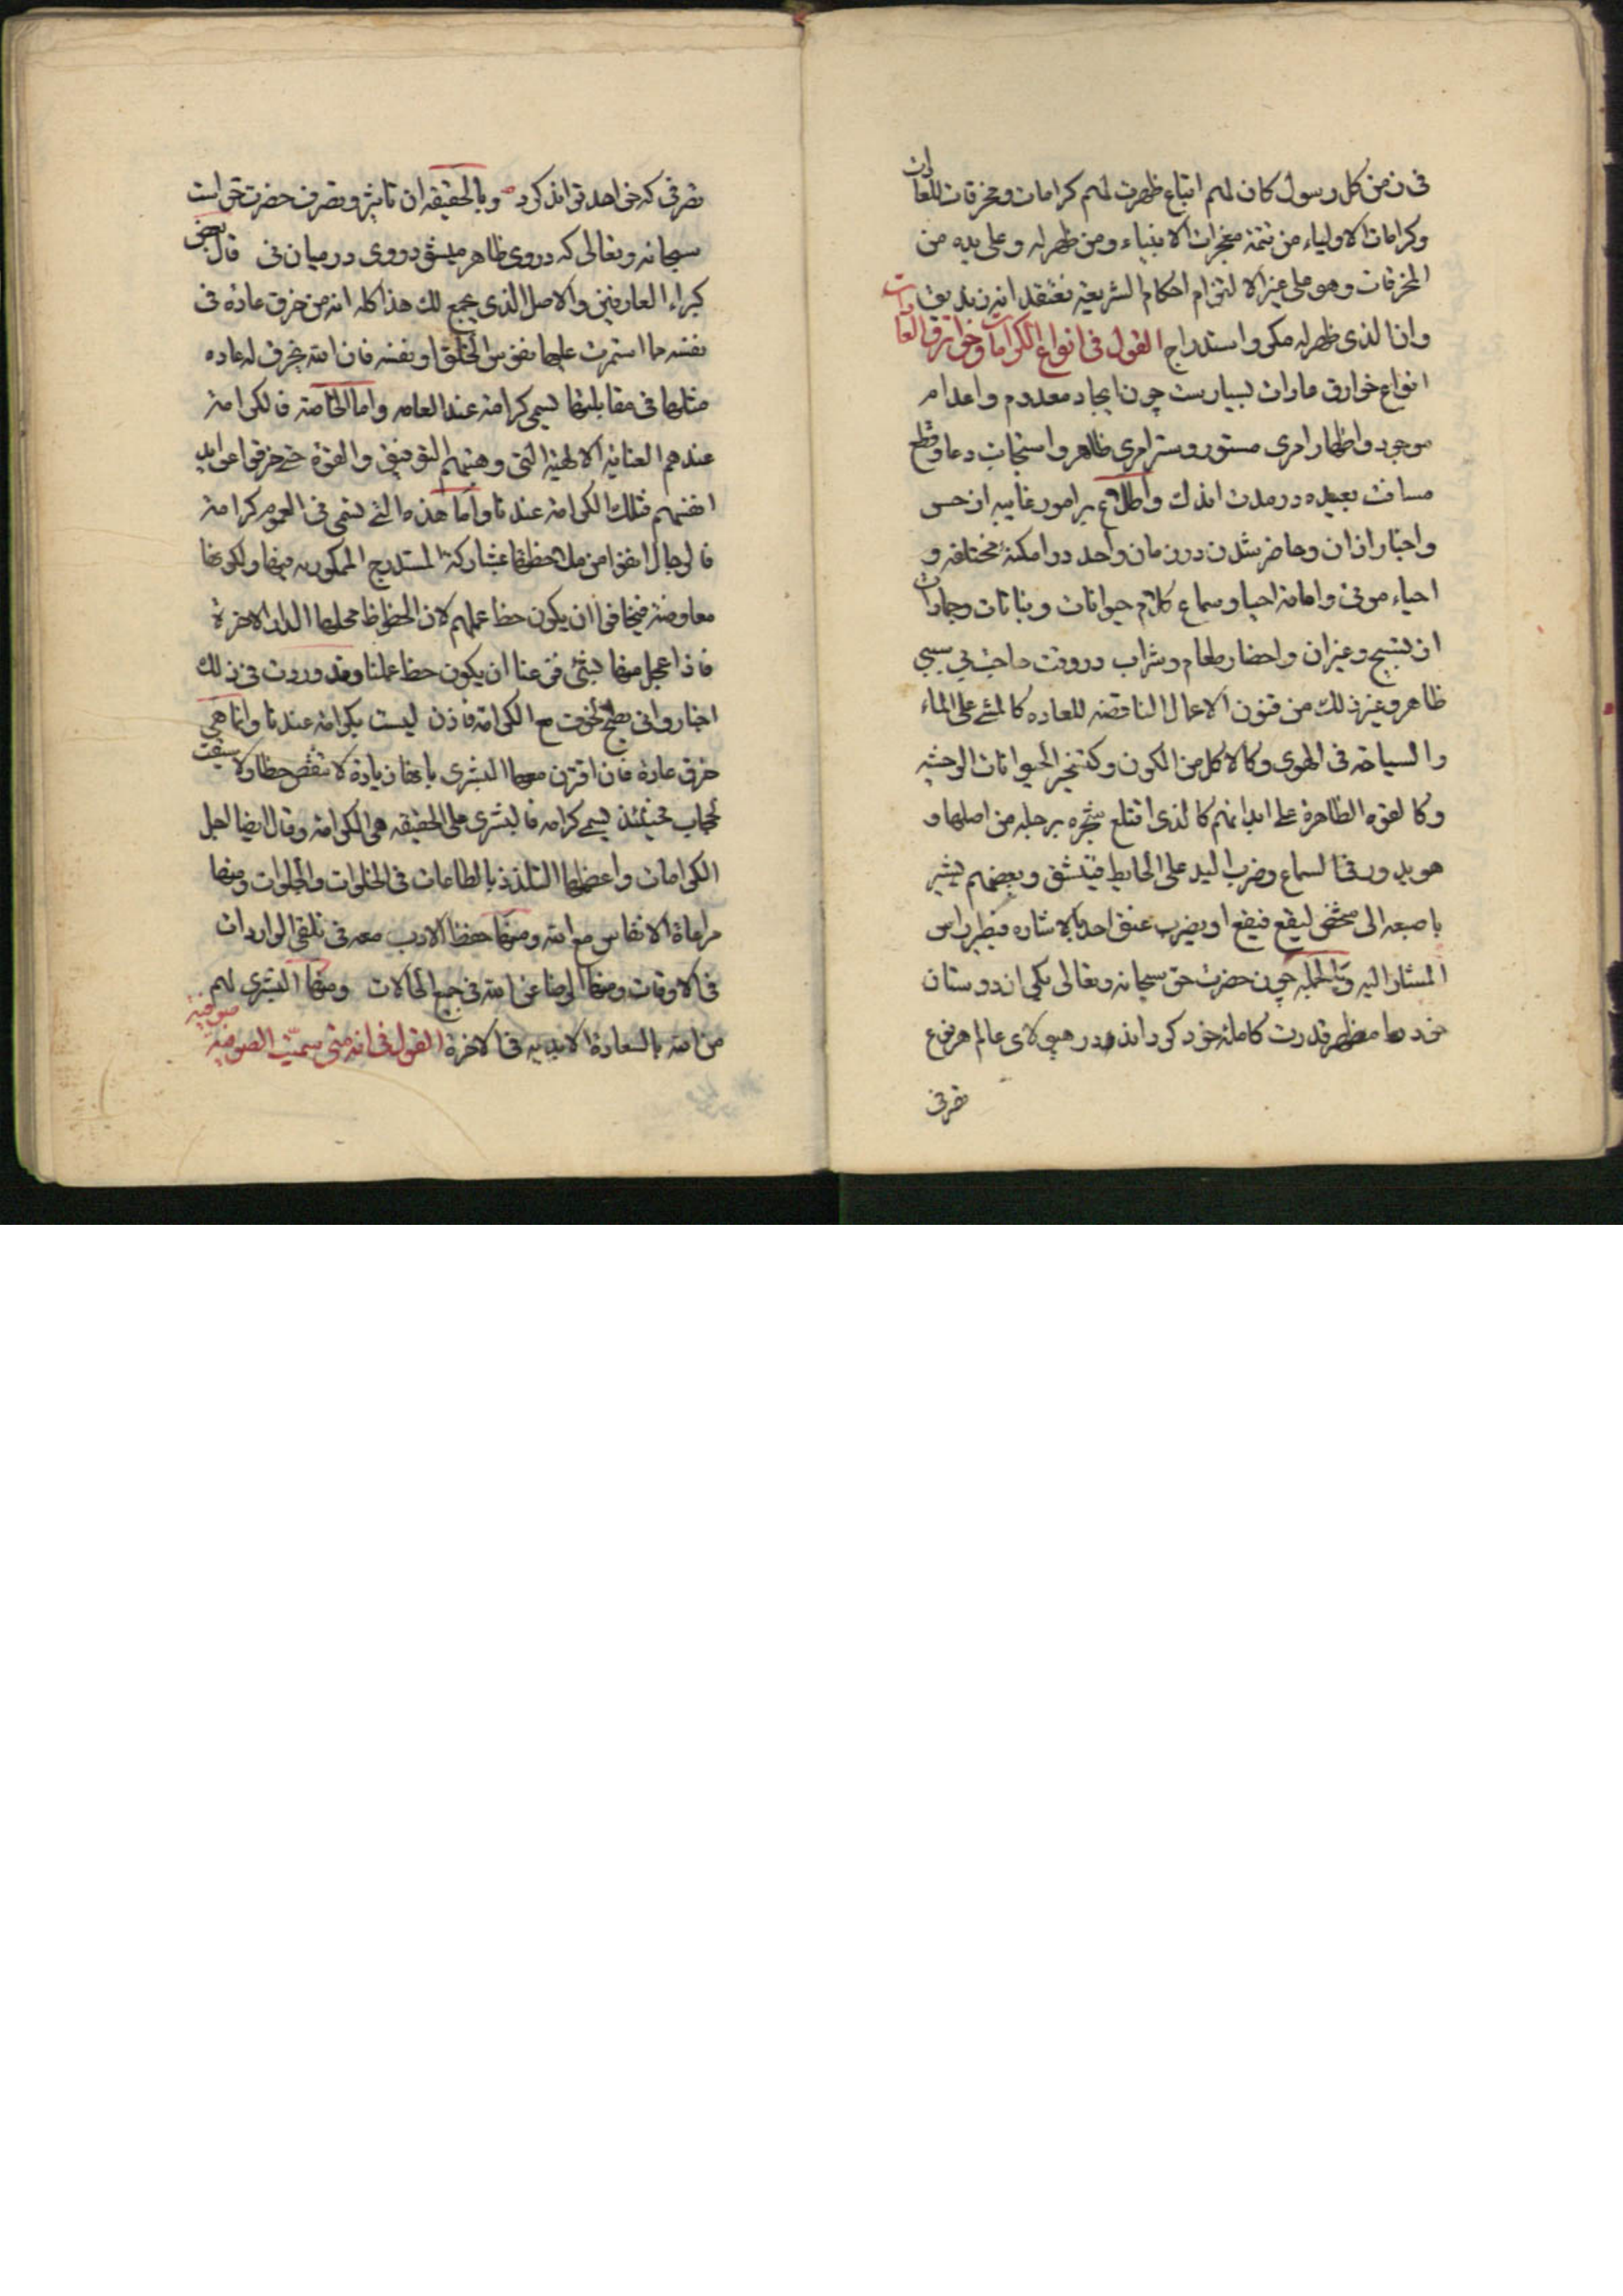 فی ن من كل رسول كان لهم اتباع ظهرت لهم كرامات ومخرقات للعادات
وكرامات الاولياء من تتمة معجزات الانبياء ومن ظهر له وعلى يده من
المخرقات وهو على غير الالتزام احكام الشريعة نعتقد انه زنديق
وان الذى ظهر له مكر واستدراج القول فى انواع الكرامات وخوارق العادات
انواع خوارق عادات بسيارست چون ايجاد معدوم واعدام
موجود واظهار امرى مستور وستر امرى ظاهر واستجابت دعا وقطع
مسافت بعيده در مدت اندك واطلاع بر امور غايبه از حس
واخبار از ان وحاضر شدن در زمان واحد در امكنهٔ مختلفه و
احياء موتى واماتة احيا وسماع كلام حيوانات ونباتات وجمادات
از تسبيح وغير ان واحضار طعام وشراب در وقت حاجت بي سببي
ظاهر وغير ذلك من فنون الاعمال الناقضه للعاده كالمشى على الماء
والسياحة فى الهوى وكالاكل من الكون وكتسخير الحيوانات الوحشيه
وكالقوه الظاهرة على ابدانهم كالذى اقتلع شجره برجله من اصلها و
هو يدور فى السماع وضرب اليد على الحايط فينشق وبعضهم يشير
باصبعه الى شخص ليقع فيقع او يضرب عنق احد بالاشاره فيطير راس
المشار اليه وبالجمله چون حضرت حق سبحانه وتعالى يكى از دوستان
خود را مظهر قدرت كامله خود كرداند در هيولاى عالم هر نوع
تصرفى
تصرفى كه خواهد تواند كرد وبالحقيقه ان تاثير وتصرف حضرت حق است
سبحانه وتعالى كه در وى ظاهر ميشود ووى در ميان نى قال بعض
كبراء العارفين والاصل الذى يجمع لك هذا كله انه من خرق عادة فى
نفسه مما استمرت عليها نفوس الخلق او نفسه فان الله يخرق له عاده
مثلها فى مقابلتها تسمى كرامة عند العامه واما الخاصة فالكرامة
عندهم العناية الالهية التى وهبتهم التوفيق والقوة حتى خرقوا عوايد
انفسهم فتلك الكرامة عندنا واما هذه التى تسمى فى العموم كرامة
فالرجال انفوا من ملاحظتها بمشاركة المستدرج الممكور به فيها ولكونها
معاوضة فيخافوا ان يكون حظ عملهم لان الحظوظ محلها الدار الاخرة
فاذا عجل منها بشئ فزعنا ان يكون حظ عملنا وقد وردت فى ذلك
اخبار وانى يصح الخوف مع الكرامة فاذن ليست بكرامة عندنا وانما هى
خرق عادة فان اقترن معها البشرى بانها زيادة لا تنقص حظا ولا سيقت
لحجاب فحينئذ تسمى كرامه فالبشرى على الحقيقه هى الكرامة وقال ايضا اجل
الكرامات واعظمها التلذذ بالطاعات فى الخلوات والجلوات ومنها
مراعاة الانفاس مع الله ومنها حفظ الادب معه فى تلقى الواردات
فى الاوقات ومنها الرضا عن الله فى جميع الحالات ومنها البشرى لهم
من الله بالسعادة الابديه فى الاخرة القول فى انه متى سميت الصوفية صوفية